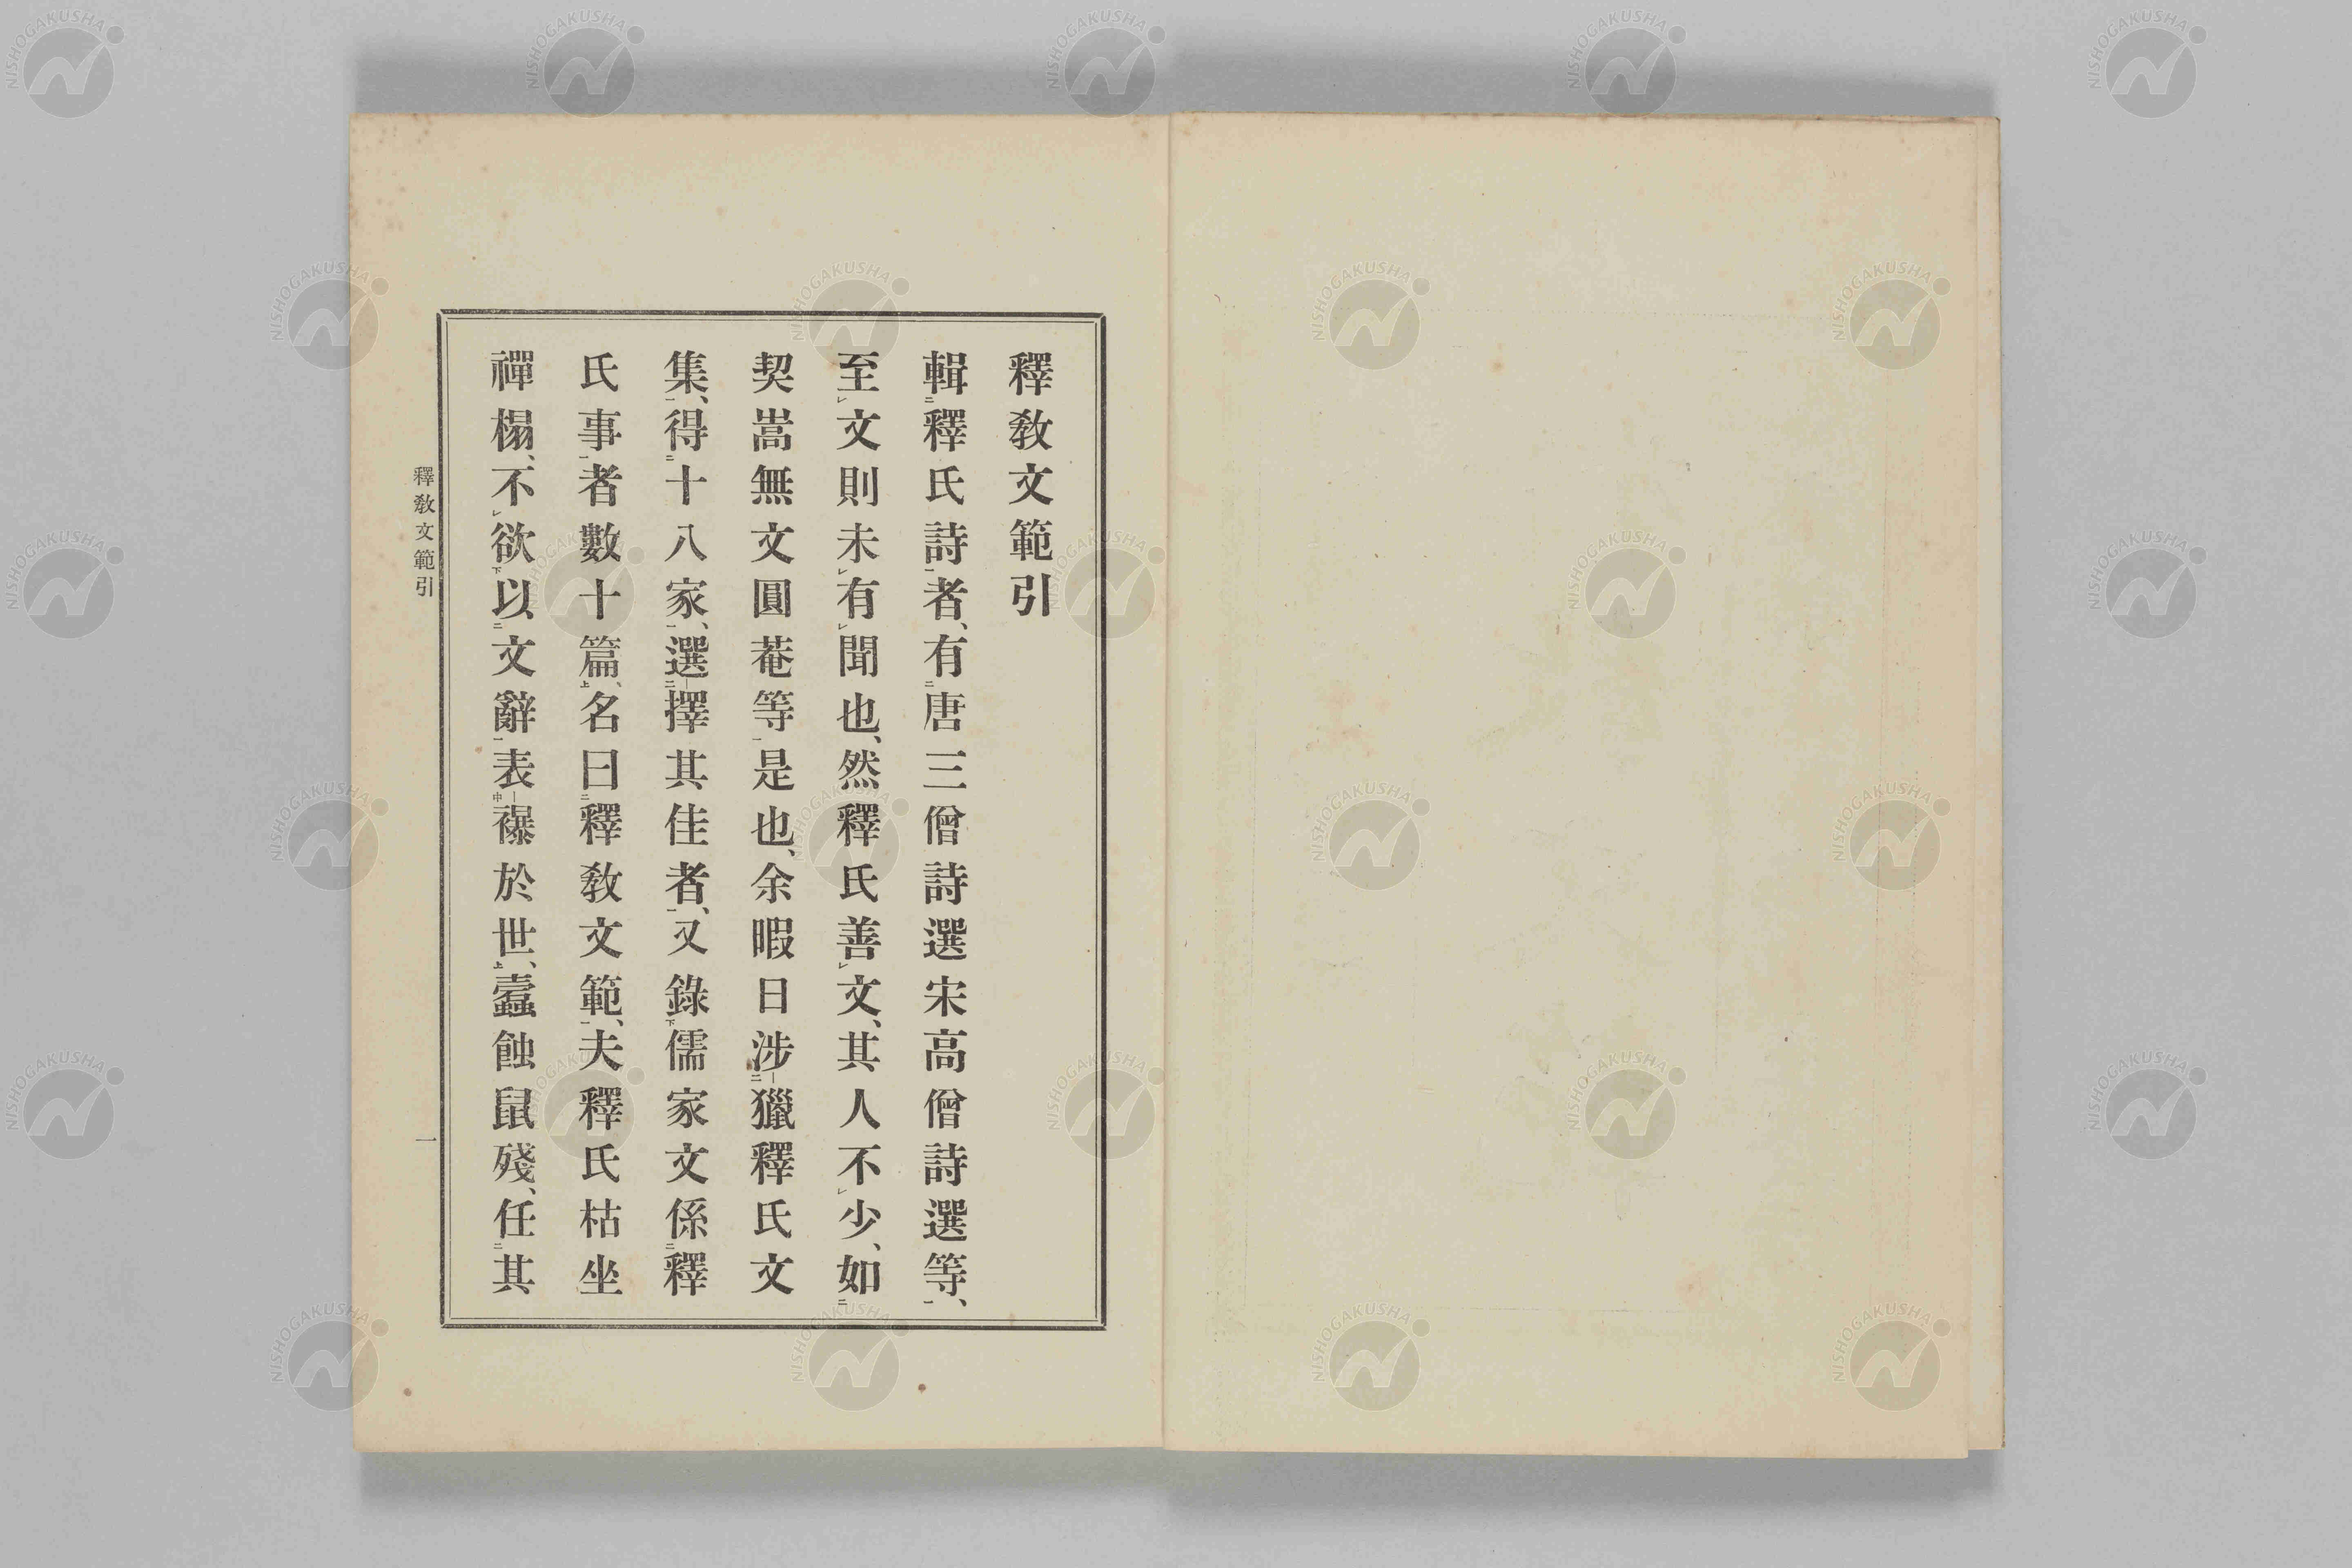 釋敎文範引
輯釋氏詩者、有唐三僧詩選宋高僧詩選等、
至文則未有聞也、然釋氏善文、其人不少、如
契嵩無文圓菴等是也、余暇日涉獵釋氏文
集、得十八家、選擇其佳者、又錄儒家文係釋
氏事者數十篇、名曰釋敎文範、夫釋氏枯坐
禪榻、不欲以文辭表襮於世、蠹蝕鼠殘、任其
釋敎文範引
一
NISHOGAKUSHA